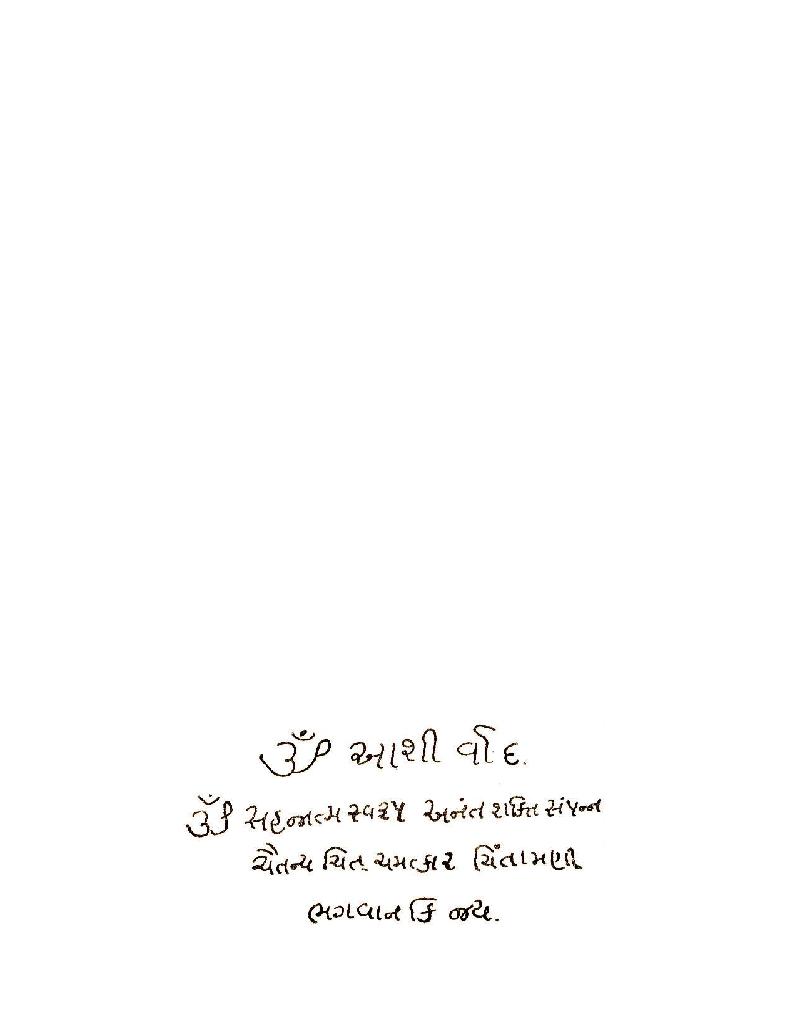 ૐ આશીર્વાદ.
ૐ સહજાત્મ સ્વરૂપ અનંત શક્તિ સંપન્ન
ચૈતન્ય ચિત્ ચમત્કાર ચિંતામણી
ભગવાન કિ જય.